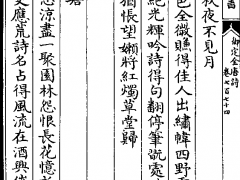 御定全唐詩 卷七百七十四
秋夜不見月
色全微賸得佳人出繡幃四野
紀光輝吟詩得句翻停筆翫處
猶悵望嬾將紅燭草堂歸
忽涼盡一聚園林怨恨長花憶
文應荒詩名占得風流在酒興